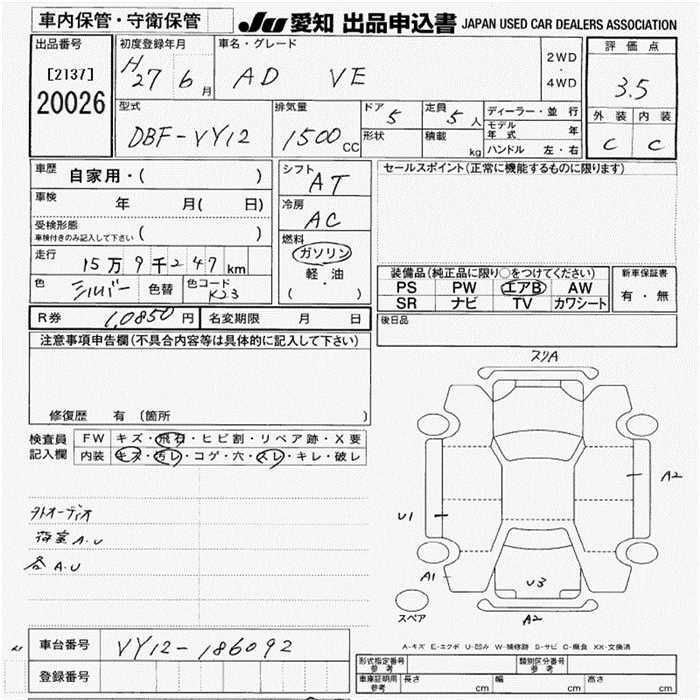 車内保管・守衛保管
JU 愛知 出品申込書 JAPAN USED CAR DEALERS ASSOCIATION
出品番号
[2137]
20026
初度登録年月
H27 6月
車名・グレード
AD VE
2WD・4WD
評価点
3.5
外装 内装
C C
型式
DBF-VY12
排気量
1500CC
ドア
5
形状
定員
5人
積載
kg
ディーラー・並行
モデル年式 年
ハンドル 左・右
車歴 自家用・( )
車検 年 月( 日)
受検形態
車検付きのみ記入して下さい ( )
走行 15万9千247km
色 シルバー 色替 色コード K23
シフト
AT
冷房
AC
燃料
ガソリン
軽・油
( )
セールスポイント(正常に機能するものに限ります)
装備品(純正品に限り○をつけてください)
PS PW エアB AW
SR ナビ TV カワシート
新車保証書
有・無
後日品
R券 1,0850円 名変期限 月 日
注意事項申告欄(不具合内容等は具体的に記入して下さい)
修復歴 有(箇所 )
検査員記入欄
FW キズ・飛石・ヒビ割・リペア跡・X要
内装 キズ・汚レ・コゲ・穴・スレ・キレ・破レ
外オーディオ
荷室A.U
各A.U
スリA
A2
U1
A1
U3
A2
スペア
A-キズ E-エクボ U-凹み W-補修跡 S-サビ C-腐食 XX-交換済
車台番号 VY12-186092
登録番号
形式指定番号 参考
類別区分番号 参考
車庫証明用 参考 長さ cm 幅 cm 高さ cm